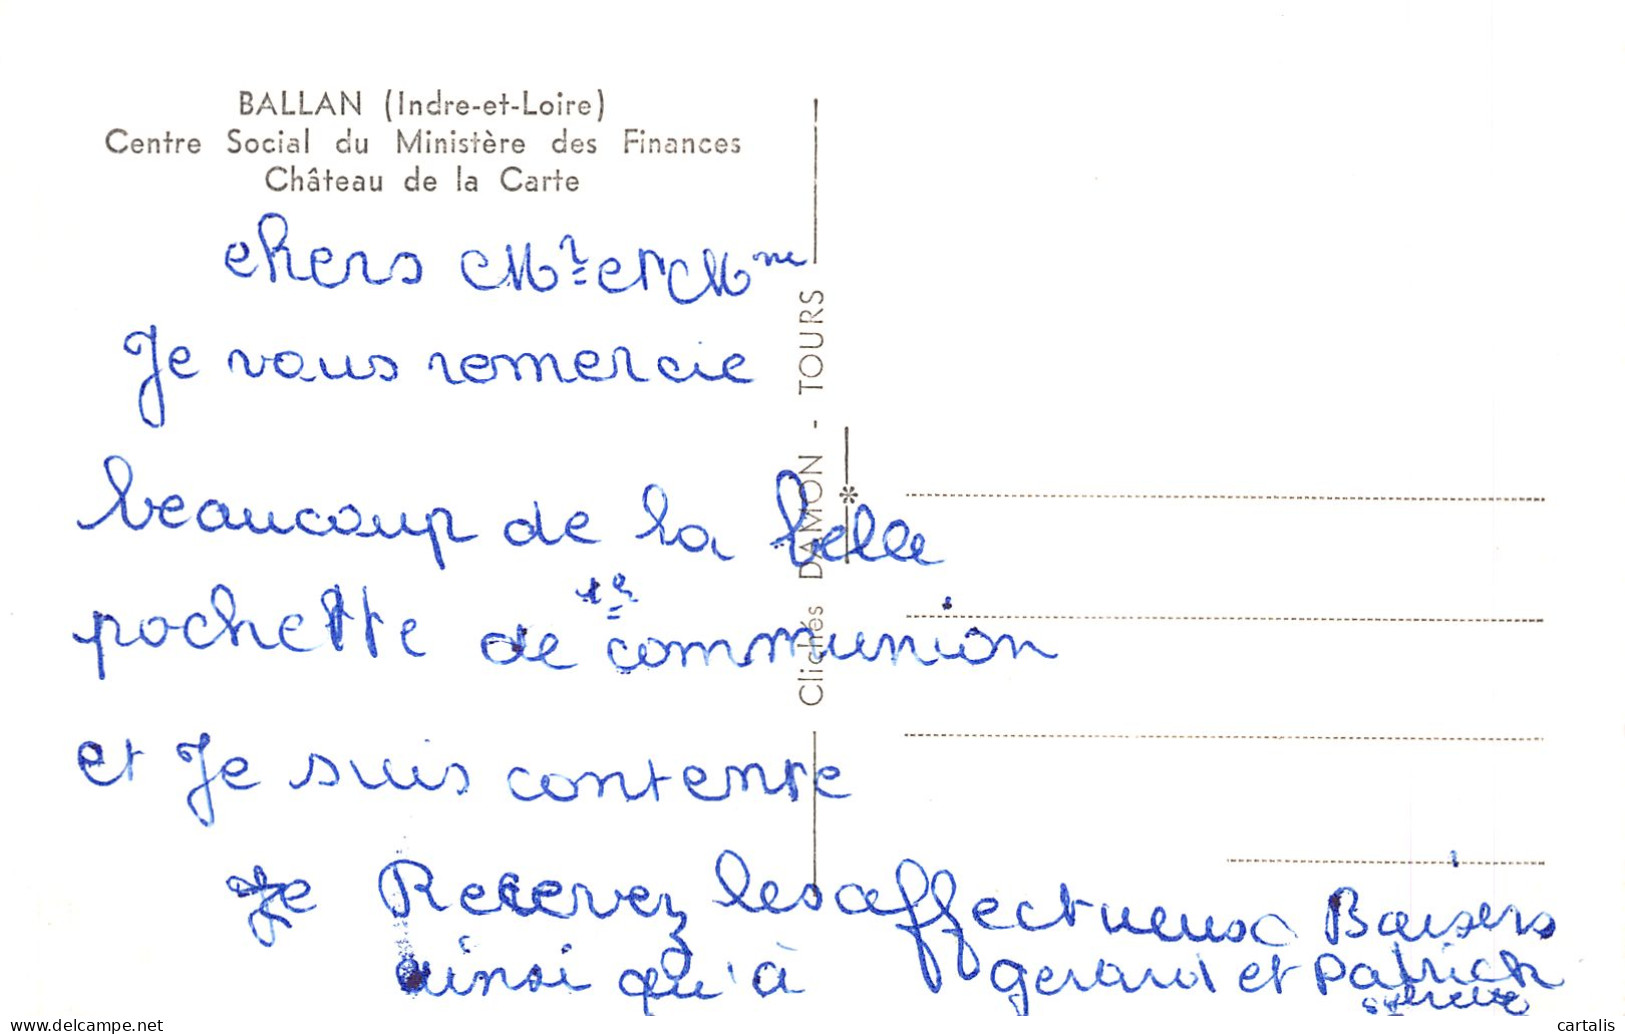 BALLAN (Indre-et-Loire)
Centre Social du Ministère des Finances
Château de la Carte
chers Mr et Mme
Je vous remercie
beaucoup de la belle
pochette de 1re communion
et Je suis contente
Je Recevez les affectueux Baisers
ainsi qu'à gerard et Patrick
Clichés DAMON - TOURS
*
delcampe.net
cartalis